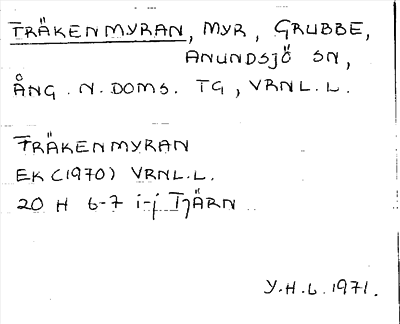 TRÄKENMYRAN, MYR, GRUBBE,
ANUNDSJÖ SN,
ÅNG. N. DOMS. TG, VRNL.L.
TRÄKENMYRAN
EK (1970) VRNL.L.
20 H 6-7 i-j TJÄRN
Y.H.L. 1971.